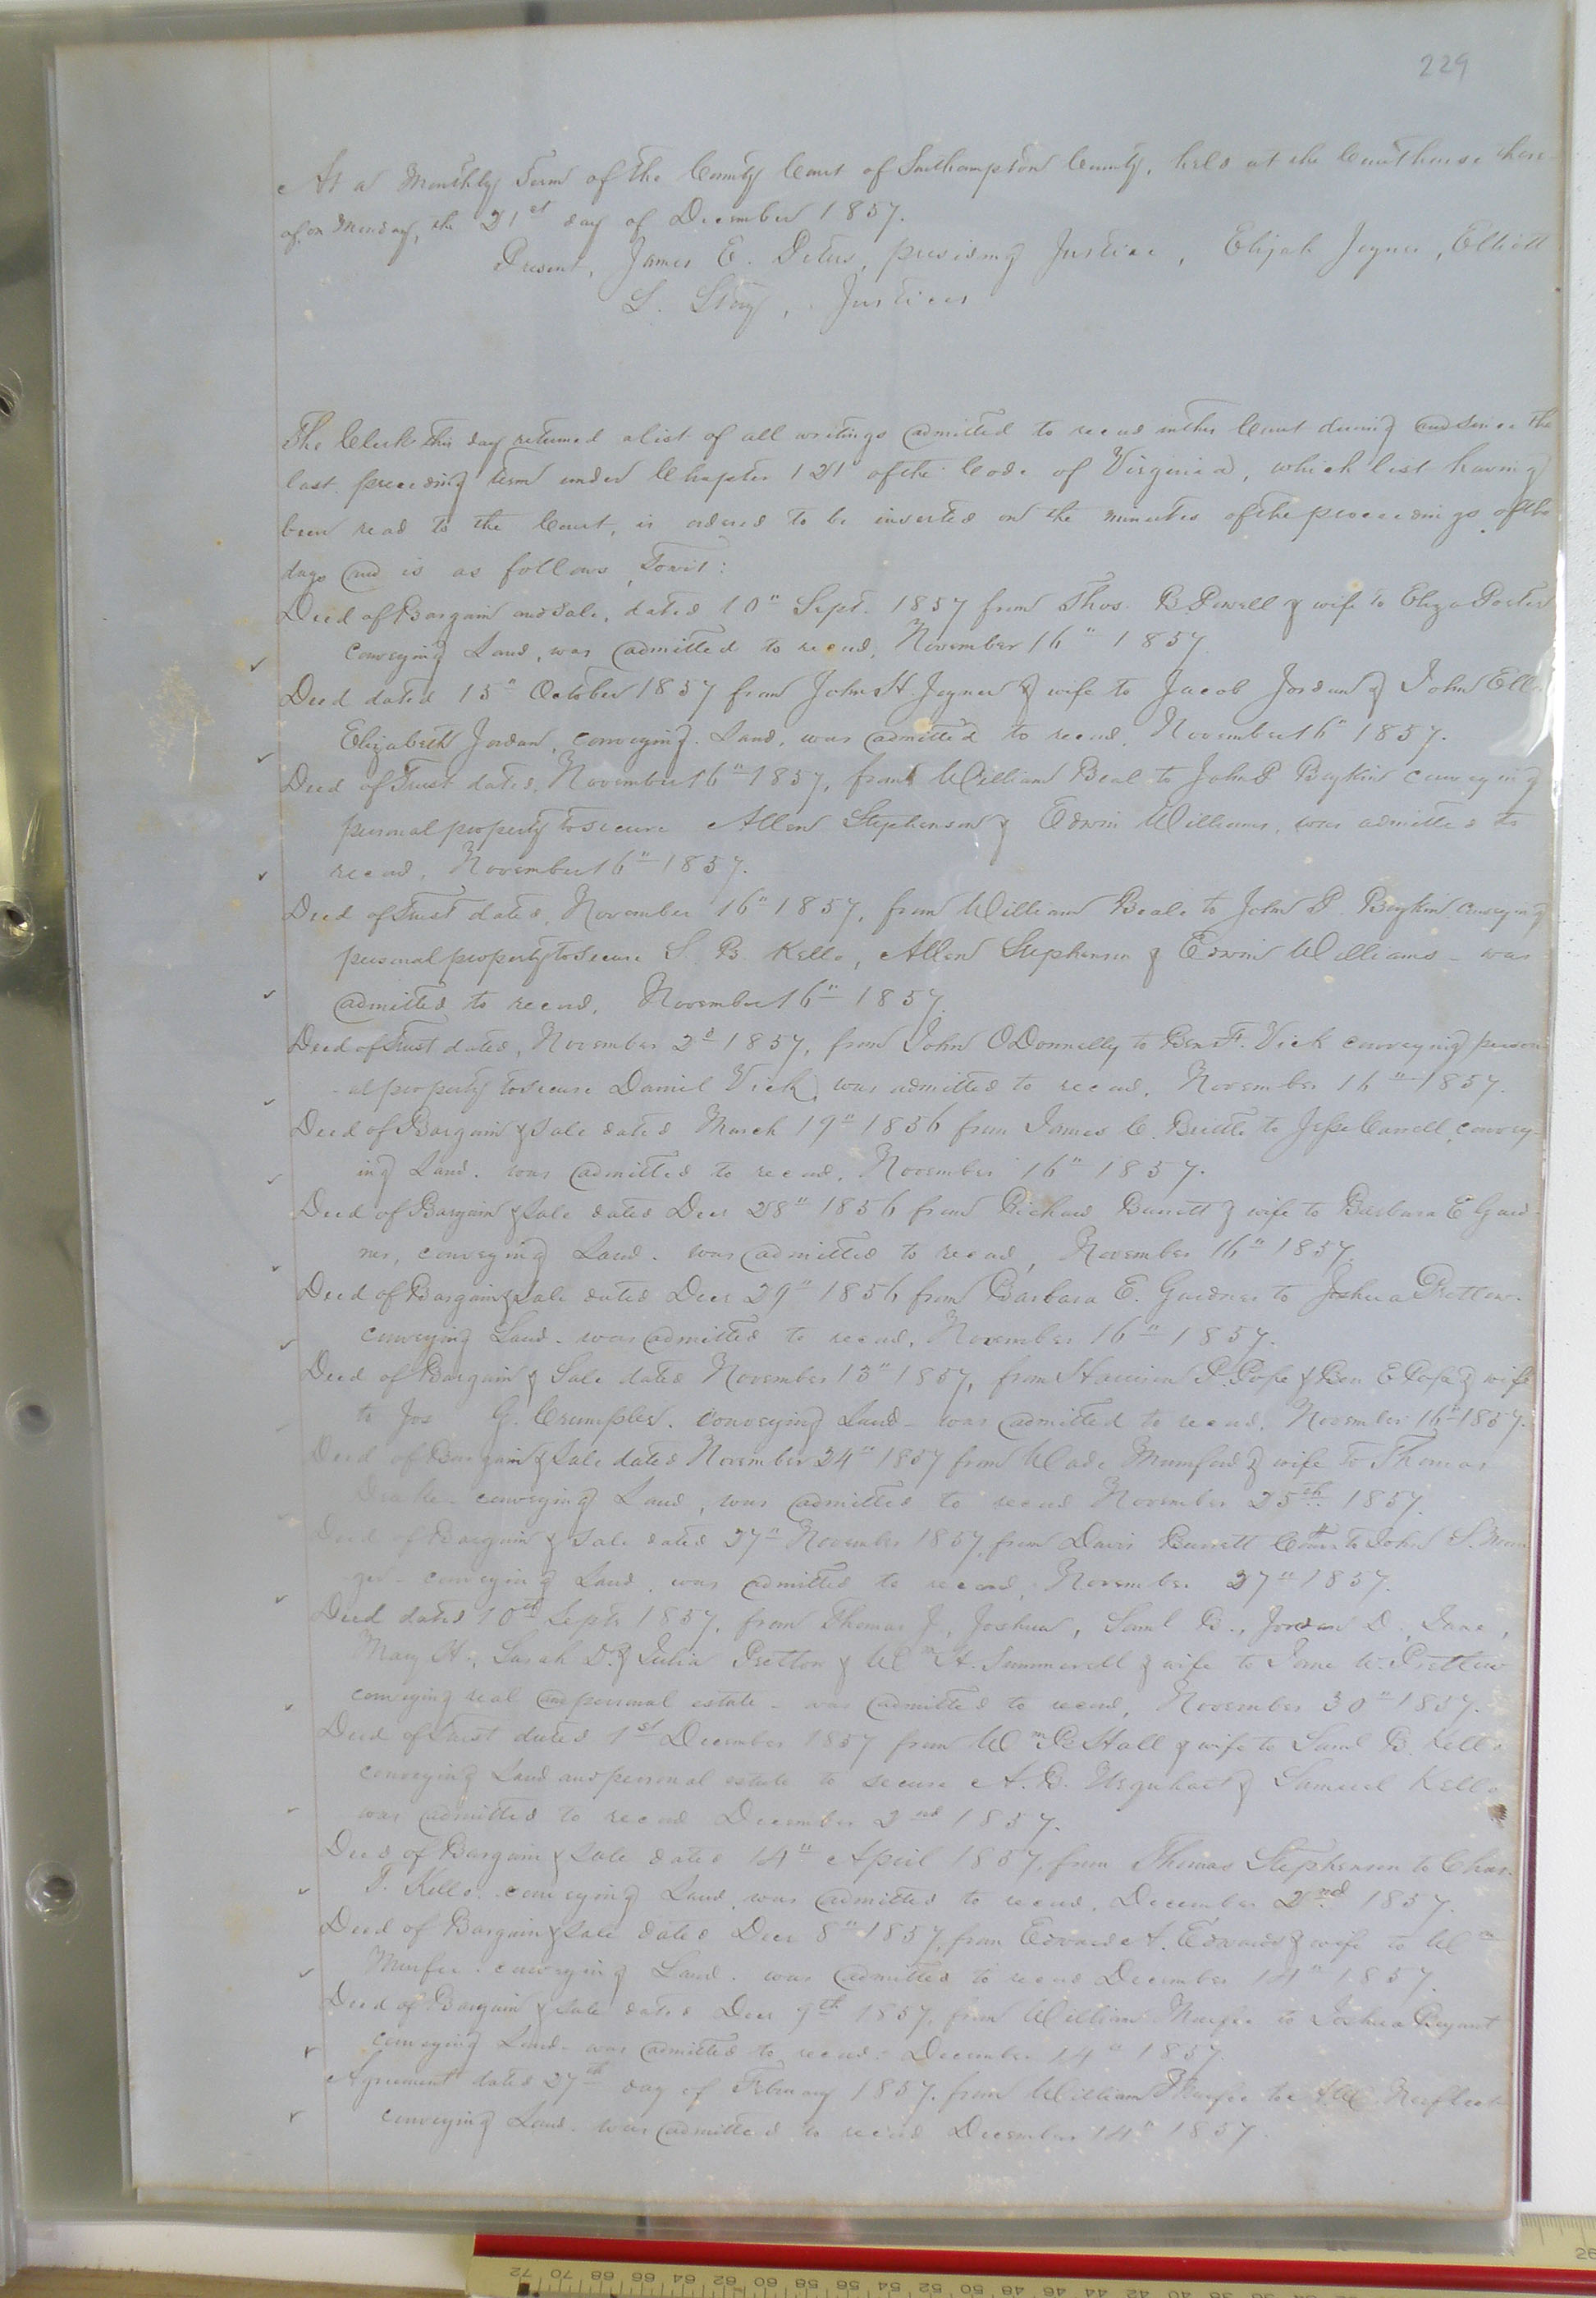 229
At a Monthly Term of the County Court of Southampton County, held at the Courthouse there-
of, on Monday, the 21st day of December 1857.
Present, James E. Peters, presiding Justice, Elijah Joyner, Elliott
L. Story, Justices
The Clerk this day returned a list of all writings admitted to record in this Court during and since the
last preceding term under Chapter 121 of the Code of Virginia, which list having
been read to the Court, is ordered to be inserted on the minutes of the proceedings of the
day and is as follows, Towit:
Deed of Bargain and Sale, dated 10" Sept. 1857 from Thos. B Powell & wife to Eliza Porter
conveying Land, was admitted to record, November 16" 1857.
Deed dated 15" October 1857 from John H. Joyner & wife to Jacob Jordan & John
Elizabeth Jordan, conveying Land, was admitted to record, November 16" 1857.
Deed of Trust dated, November 16" 1857, from William Beal to John P Boykin conveying
personal property to secure Allen Stephenson & Edwin Williams, was admitted to
record, November 16" 1857.
Deed of Trust dated, November 16" 1857, from William Beale to John P. Boykin, conveying
personal property to secure S. B. Kello, Allen Stephenson & Edwin Williams - was
admitted to record, November 16" 1857.
Deed of Trust dated, November 2d 1857, from John ODonnelly to Ben F. Vick conveying person-
-al property to secure Daniel Vick, was admitted to record, November 16" 1857.
Deed of Bargain & Sale dated March 19" 1856 from James C. Brittle to Jesse Carrell, convey-
ing Land. was admitted to record, November 16" 1857.
Deed of Bargain & Sale dated Decr 28" 1856 from Richard Barrett & wife to Barbara E Gard-
ner, conveying Land. was admitted to record, November 16" 1857.
Deed of Bargain & Sale dated Decr 29" 1856 from Barbara E. Gardner to Joshua Pretlow.
conveying Land - was admitted to record, November 16" 1857.
Deed of Bargain & Sale dated November 13" 1857, from Harrison P. Pope & Ben E Pope & wife
to Jos G. Crumpler. conveying Land - was admitted to record, November 16" 1857.
Deed of Bargain & Sale dated November 24" 1857 from Wade Mumford & wife to Thomas
Drake - conveying Land, was admitted to record November 25th 1857.
Deed of Bargain & Sale dated 27" November 1857, from Davis Barrett to John S.
ger - conveying Land, was admitted to record, November 27" 1857.
Deed dated 10th Septr 1857, from Thomas J., Joshua, Saml B., Jordan D., Jane,
Mary H., Sarah D. & Julia Pretlow & Wm H. Summerell & wife to Jane W. Pretlow
conveying real and personal estate - was admitted to record, November 30" 1857.
Deed of Trust dated 1st December 1857 from Wm B Hall & wife to Saml B. Kello
conveying Land and personal estate to secure A. B. Urquhart & Samuel Kello
was admitted to record December 2nd 1857.
Deed of Bargain & Sale dated 14" April 1857, from Thomas Stephenson to Chas.
T. Kello. conveying Land, was admitted to record, December 2nd 1857.
Deed of Bargain & Sale dated Decr 8" 1857, from Edward A. Edwards & wife to Wm
Murfee. conveying Land. was admitted to record December 14" 1857.
Deed of Bargain & Sale dated Decr 9th 1857, from William Murfee to Joshua Bryant
conveying Land - was admitted to record - December 14" 1857.
Agreement dated 27th day of February 1857, from William Murfee to Norfleet
conveying Land - was admitted to record December 14" 1857.